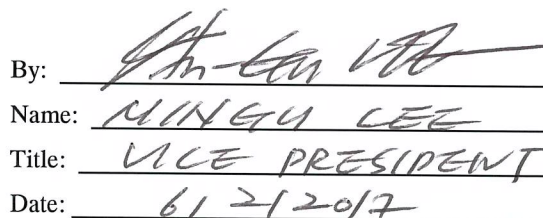 By:
Name: MINGU LEE
Title: VICE PRESIDENT
Date: 6/2/2017